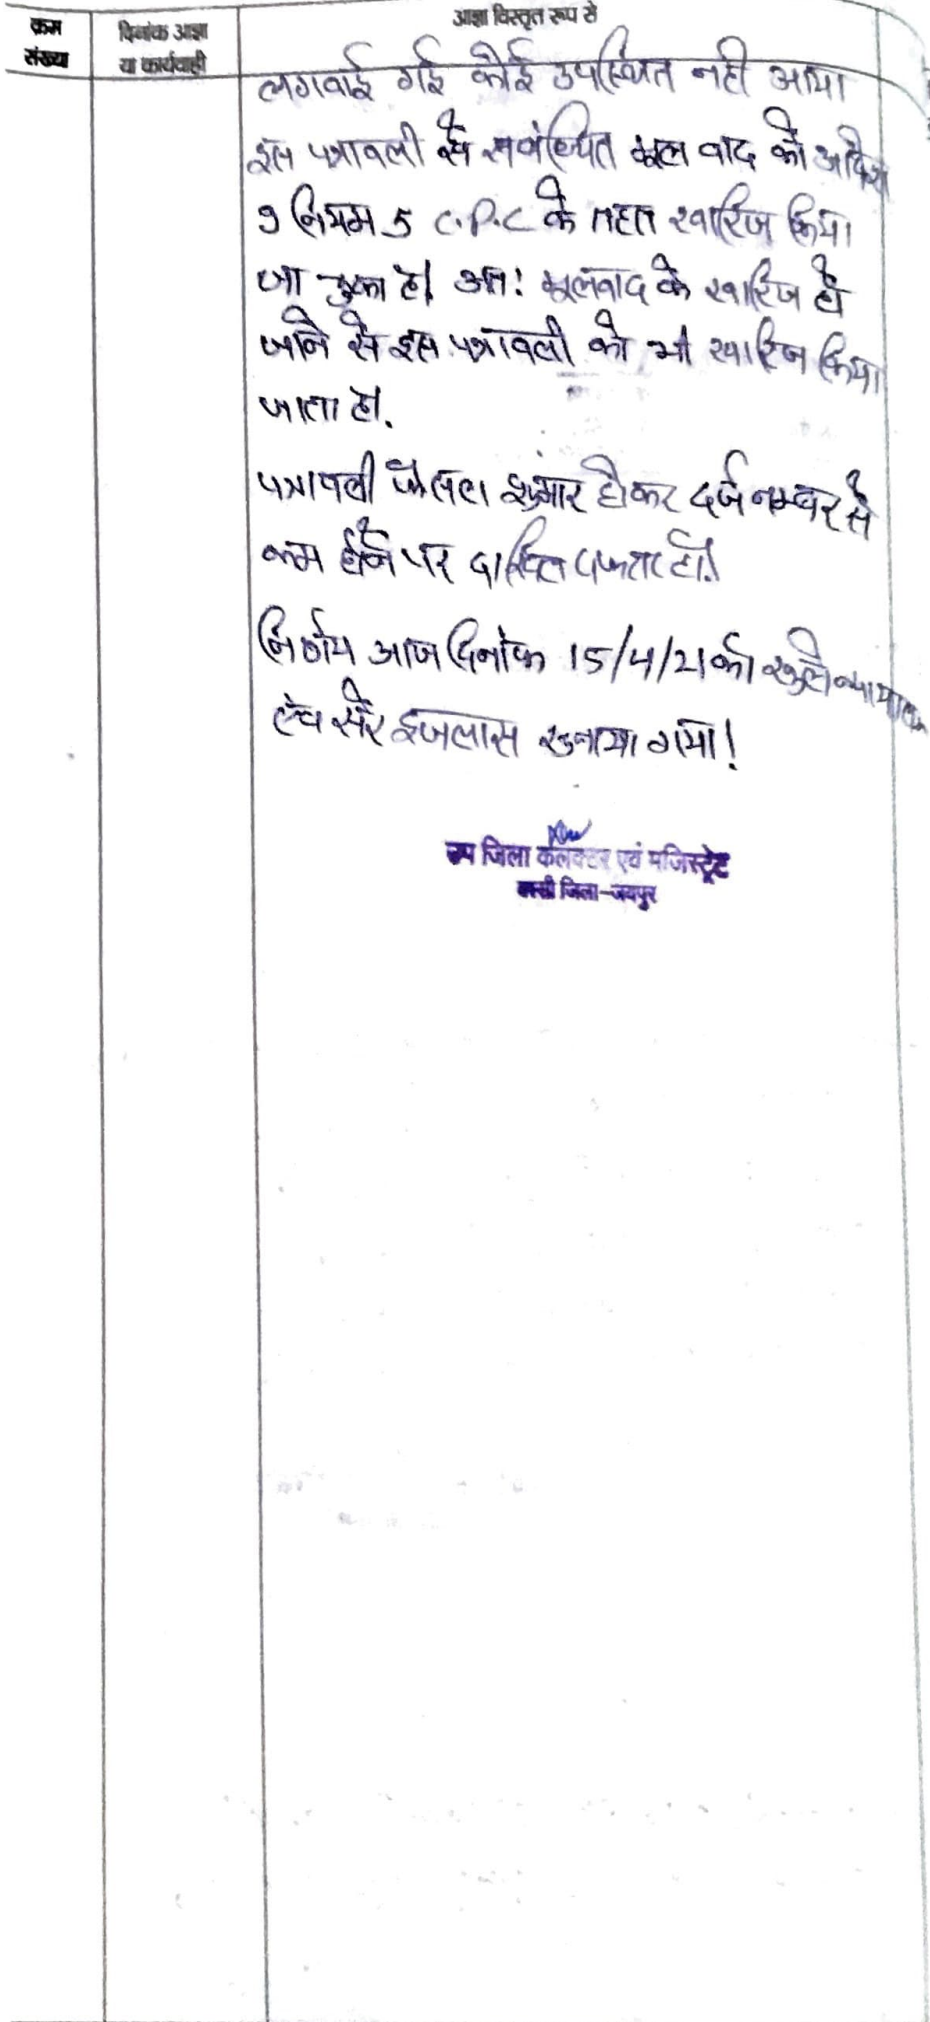 क्रम
संख्या
दिनांक आज्ञा
या कार्यवाही
आज्ञा विस्तृत रूप से
लगवाई गई कोई उपस्थित नही आया
इस पत्रावली से सबंन्धित मूल वाद को आदेश
9 नियम 5 C.P.C के तहत खारिज किया
जा चुका है। अत: मूलवाद के खारिज हो
जाने से इस पत्रावली को भी खारिज किया
जाता है।
पत्रावली फैसला शुमार होकर दर्ज नम्बर से
कम होने पर दाखिल दफ्तर हो।
निर्णय आज दिनांक 15/4/21 को खुले न्यायालय
सरे इजलास सुनाया गया!
उप जिला कलक्टर एवं मजिस्ट्रेट
बस्सी जिला-जयपुर